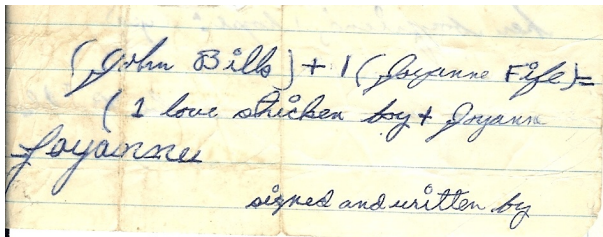 (John Bills) + 1 (Joyanne Fife) =
(1 love stricken boy + Joyann
Joyanne
signed and written by